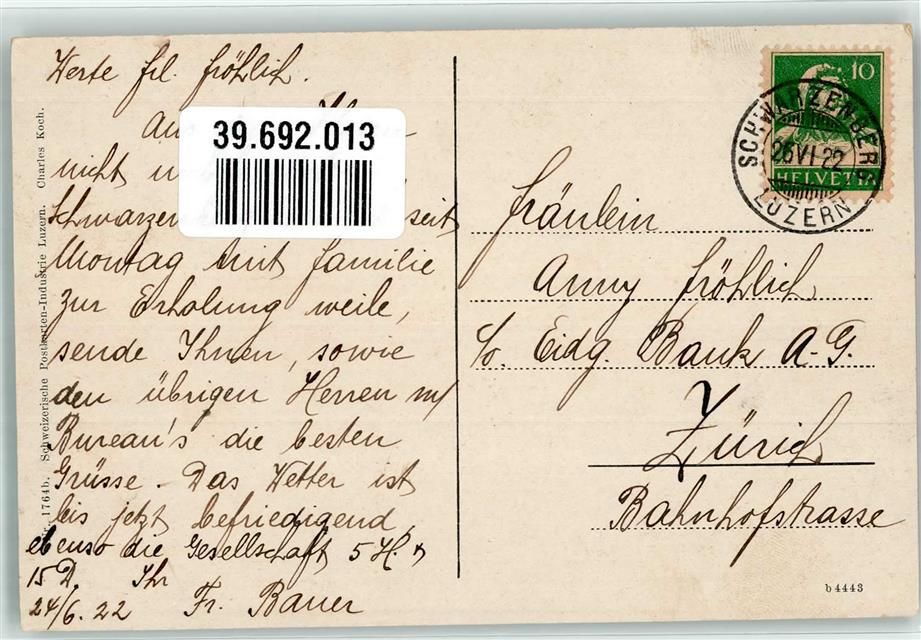 Werte Frl. Fröhlich.
Aus
nicht
Schwarzen seit
Montag mit Familie
zur Erholung weile,
sende Ihnen, sowie
den übrigen Herren
Bureau's die besten
Grüsse. Das Wetter ist
bis jetzt befriedigend,
ebenso die Gesellschaft 5 H.
15 D. Ihr
24/6. 22 Fr. Bauer
39.692.013
1764b. Schweizerische Postkarten-Industrie Luzern. Charles Koch.
10
HELVETIA
SCHWARZENBERG
26 VI 22
LUZERN
Fräulein
Anny Fröhlich
c/o. Eidg. Bank A.-G.
Zürich
Bahnhofstrasse
b 4443